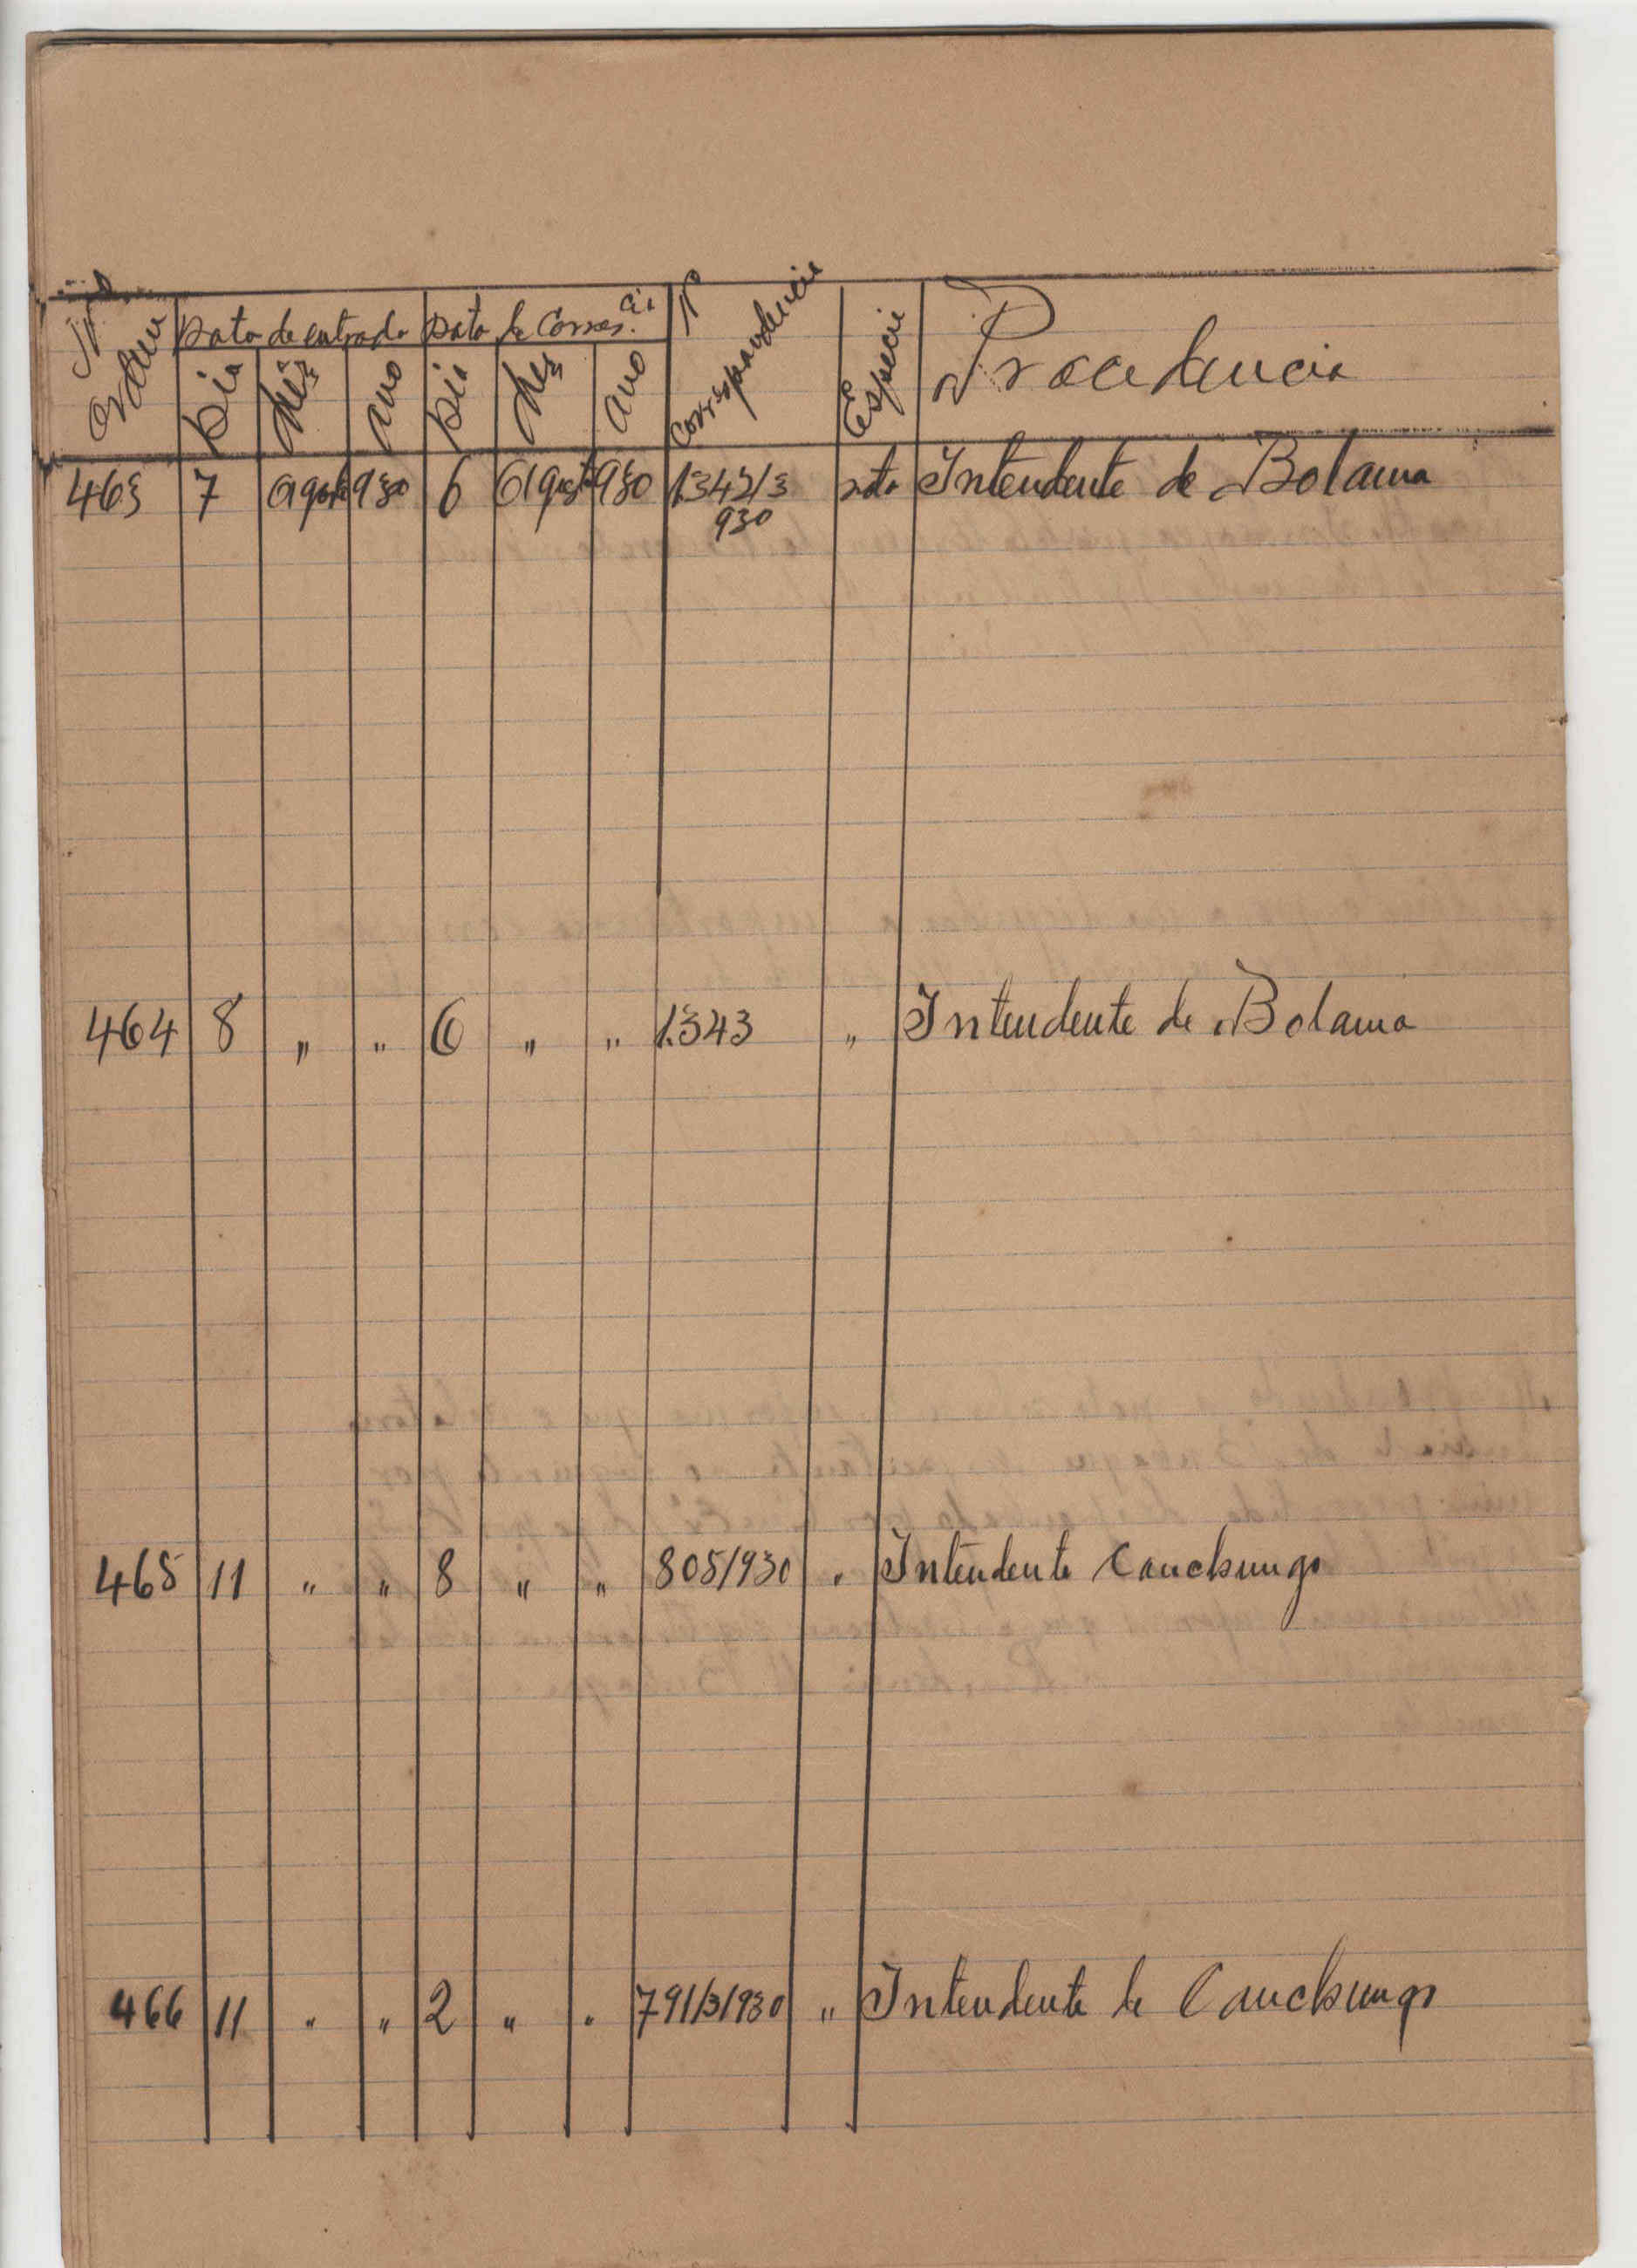 Nº Ordem Data de entrada Data de Corres.cia Nº Correspondencia Especie Procedencia
Dia Mês Ano Dia Mês Ano
463 7 Agosto 930 6 Agosto 930 1.342/3 nota Intendente de Bolama
930
464 8 " " 6 " " 1.343 " Intendente de Bolama
465 11 " " 8 " " 805/930 " Intendente Canchungo
466 11 " " 2 " " 791/3/930 " Intendente de Canchungo